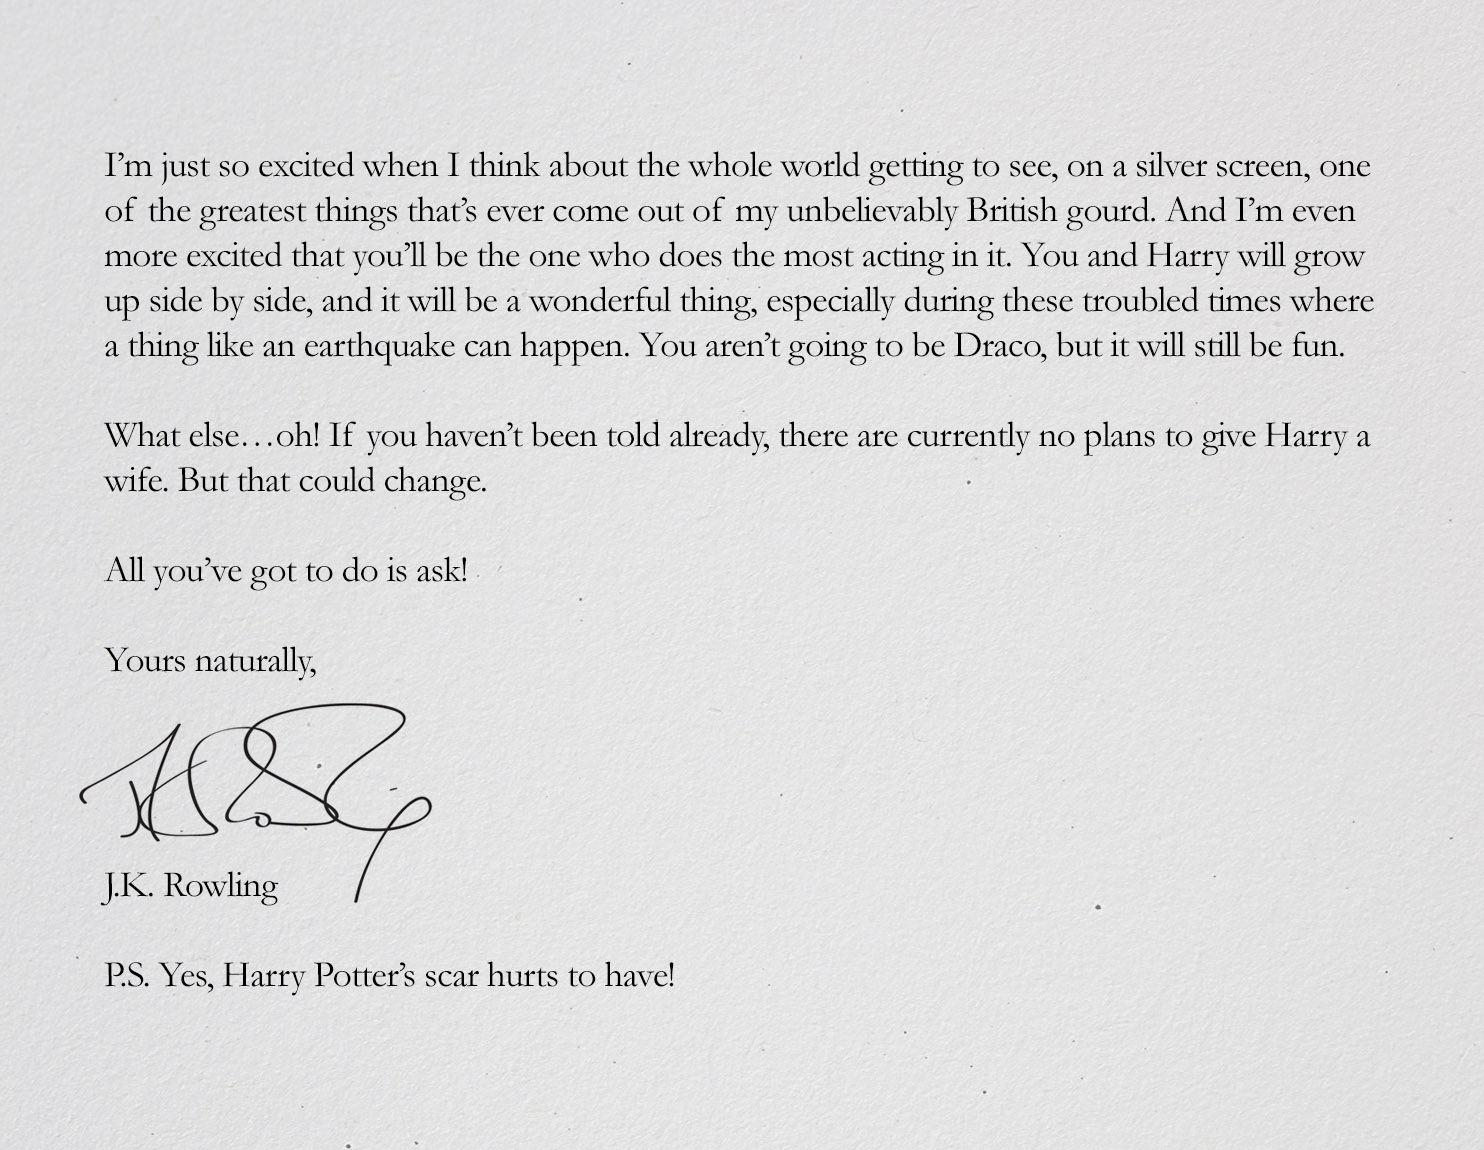 I'm just so excited when I think about the whole world getting to see, on a silver screen, one
of the greatest things that's ever come out of my unbelievably British gourd. And I'm even
more excited that you'll be the one who does the most acting in it. You and Harry will grow
up side by side, and it will be a wonderful thing, especially during these troubled times where
a thing like an earthquake can happen. You aren't going to be Draco, but it will still be fun.
What else…oh! If you haven't been told already, there are currently no plans to give Harry a
wife. But that could change.
All you've got to do is ask!
Yours naturally,
J.K. Rowling
P.S. Yes, Harry Potter's scar hurts to have!